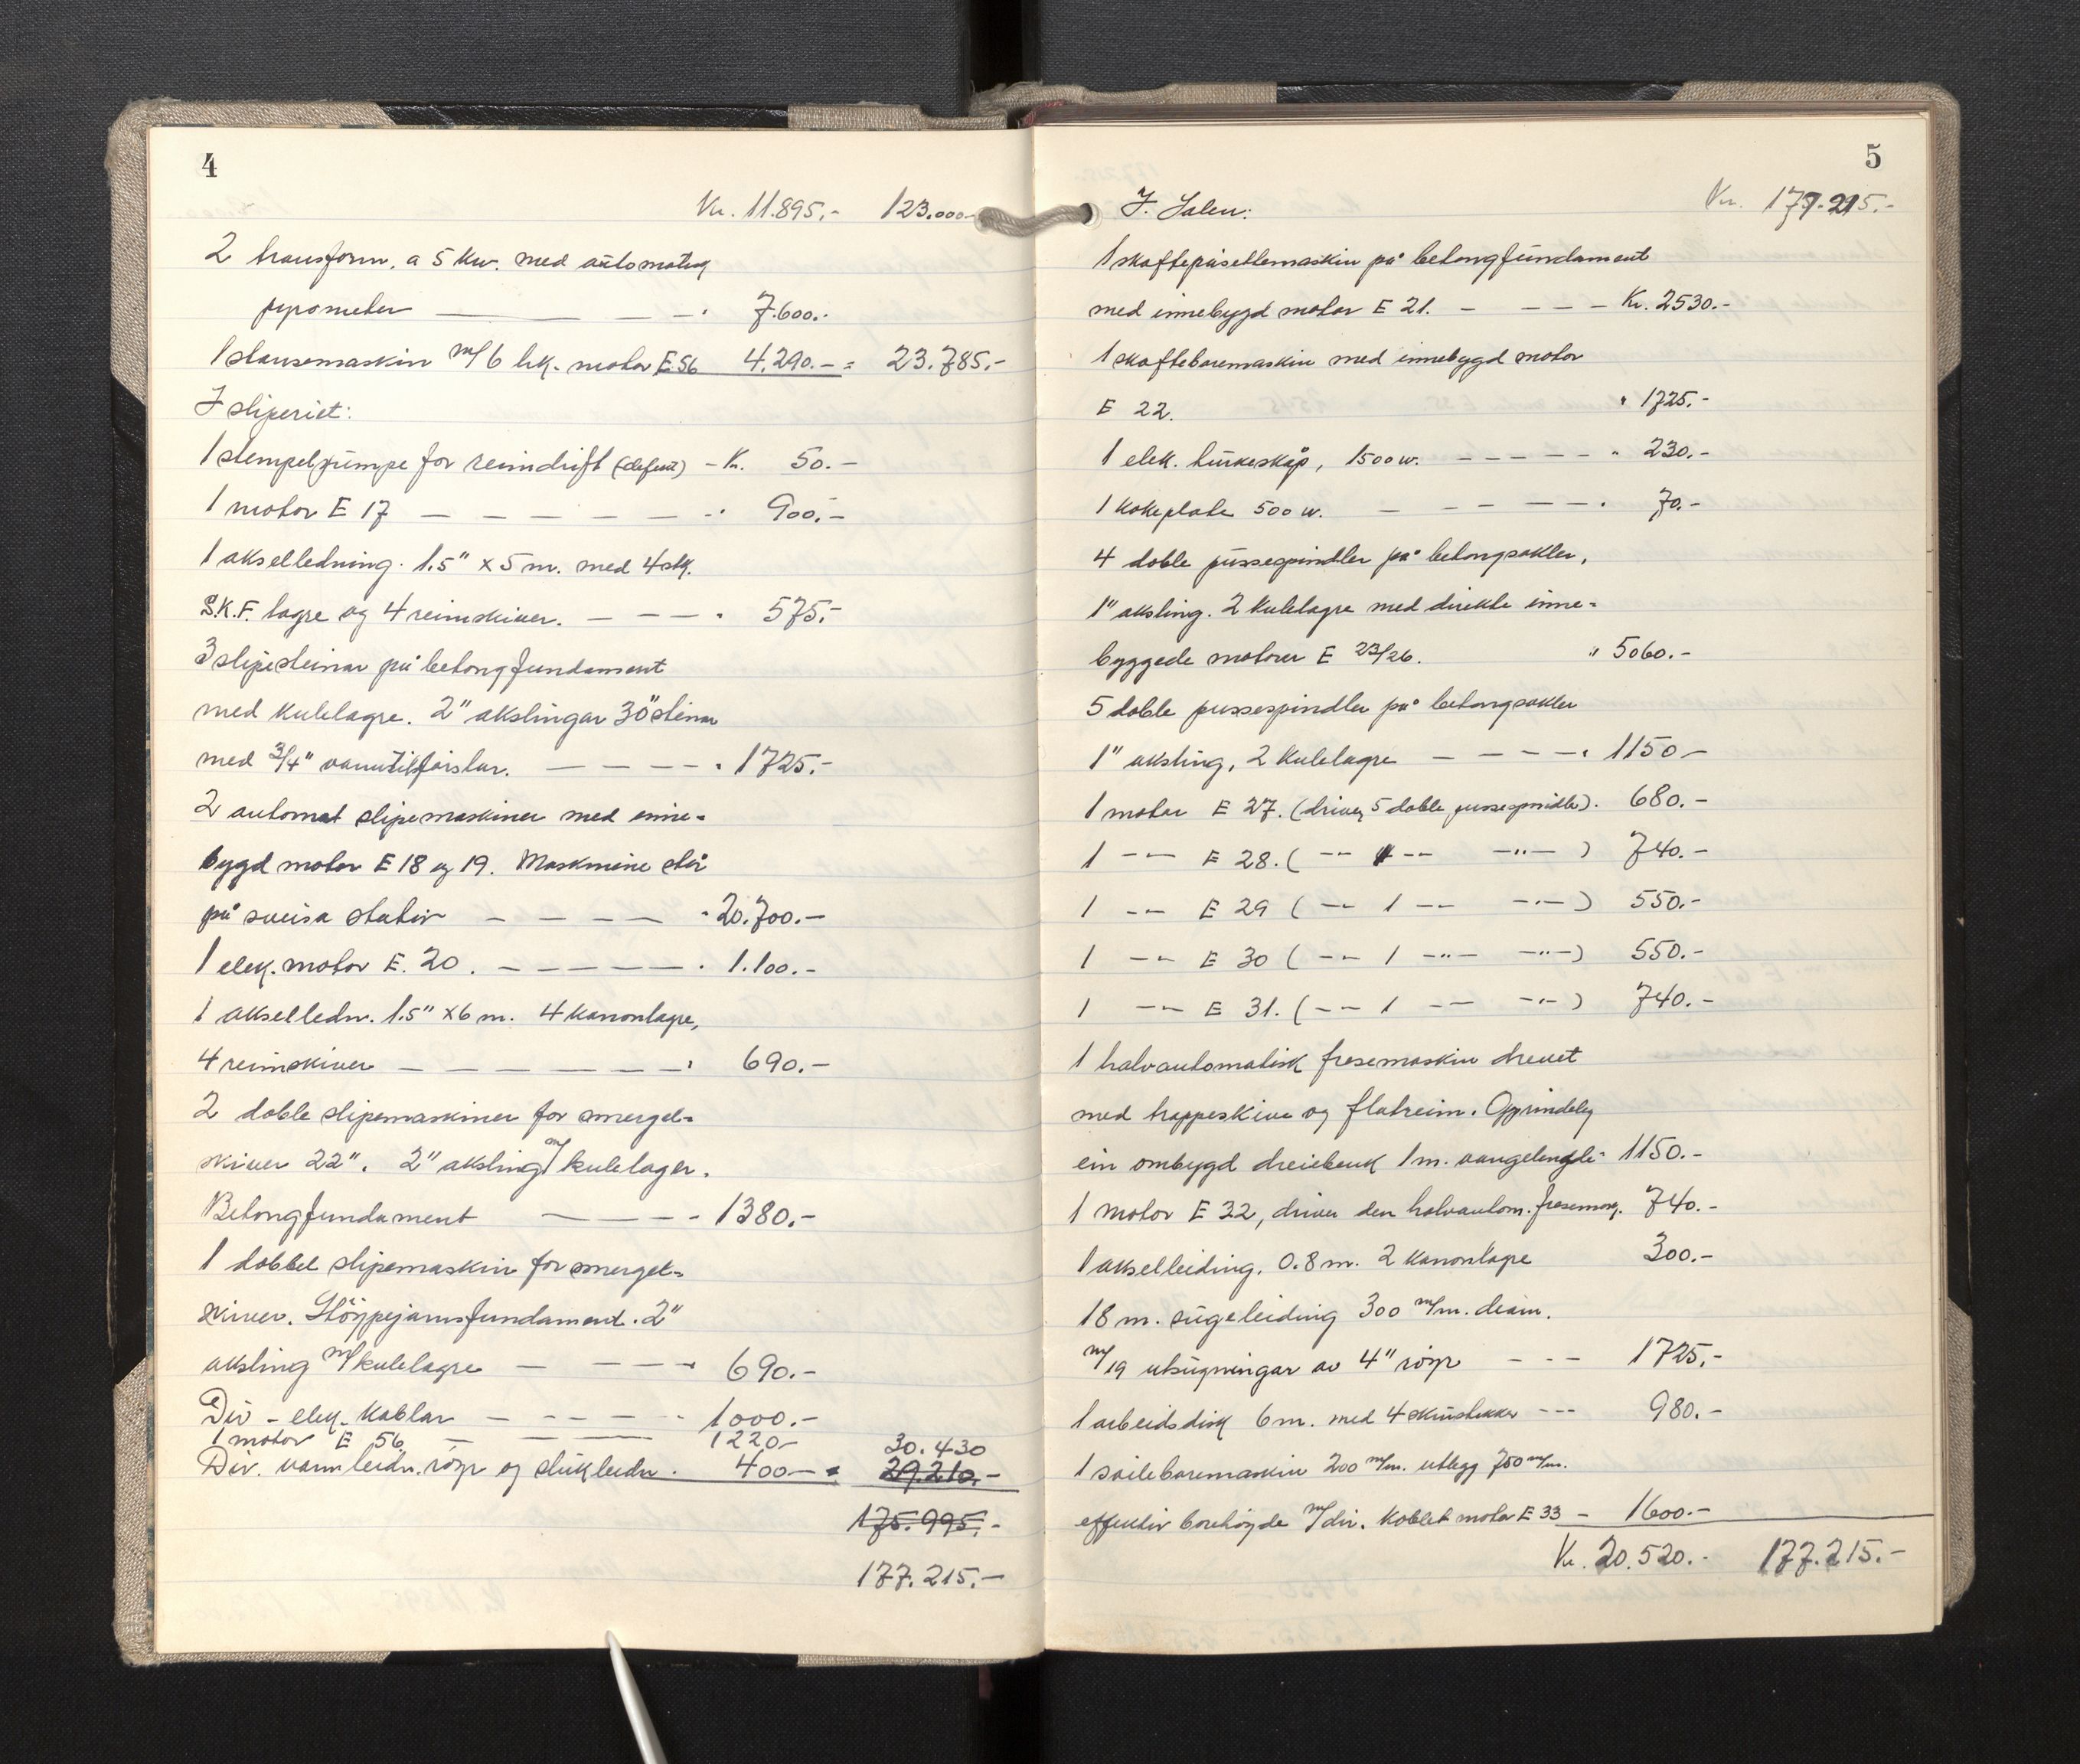 4
Kr. 11.895,- 123.000-
2 transform. a 5 kw. med automatisk
pyrometer — — — — " 7.600.-
1 stansemaskin m/6 hk. motor E.56 4.290.- = 23.785.-
I sliperiet:
1 stempelpumpe for reimdrift (defekt) - Kr. 50.-
1 motor E 17 — — — — — — " 900.-
1 akselledning. 1.5" x 5 m. med 4 stk.
S.K.F. lagre og 4 reimskiver. — — — " 575.-
3 slipesteinar på betongfundament
med kulelagre. 2" akslingar 30" steinar
med 3/4" vanntilførslar. — — — — " 1725.-
2 automat slipemaskiner med inne-
bygd motor E 18 og 19. Maskinene står
på sveisa stativ — — — — " 20.700.-
1 elek. motor E. 20. — — — — — " 1.100.-
1 akselledn. 1.5" x 6 m. 4 kanonlagre,
4 reimskiver — — — — — — " 690.-
2 doble slipemaskiner for smergel-
skiver 22". 2" aksling m/ kulelager.
Betongfundament — — — - 1380.-
1 dobbel slipemaskin for smergel-
skiver. Støypejarnsfundament. 2"
aksling m/kulelagre — — — — 690.-
Div - elek. kablar — - - — - 1000.-
1 motor E 56 — — — 1220-
30.430
Div. vannledn. røyr og slukledn. 400— = 29.210.-
175.995.-
177.215.-
5
I. Salen:
Kr. 177.215.-
1 skaftepåsettemaskin på betongfundament
med innebygd motor E 21. - — — — Kr. 2530.-
1 skafteboremaskin med innebygd motor
E 22. " 1725.-
1 elek. turkeskåp, 1500 w. - - - - - - " 230.-
1 kokeplate 500 w. — - - — — " 70.-
4 doble pussespindler på betongsokler,
1" aksling. 2 kulelagre med direkte inne-
byggede motorer E 23/26. " 5060.-
5 doble pussespindler på betongsokler
1" aksling, 2 kulelagre — — — — " 1150-
1 motor E 27. (driver 5 doble pussespindle). 680.-
1 -"- E 28. ( -"- 1 -"- -"- ) 740.-
1 -"- E 29 ( -"- 1 -"- -"- ) 550.-
1 -"- E 30 ( -"- 1 -"- -"- ) 550.-
1 -"- E 31. ( -"- 1 -"- -"- ) 740.-
1 halvautomatisk fresemaskin drevet
med trappeskive og flatreim. Opprindeleg
ein ombygd dreiebenk 1 m. vangelengde- 1150.-
1 motor E 32, driver den halvautom. fresemas. 740.-
1 akselleiding. 0.8 m. 2 kanonlagre 300.-
18 m. sugeleiding 300 m/m. diam.
m/19 utsugningar av 4" røyr - - - 1725.-
1 arbeidsdisk 6 m. med 4 skrustikker --- 980.-
1 søileboremaskin 200 m/m. utlegg 750 m/m.
effektiv borehøyde m/dir. koblet motor E 33 - 1600.-
Kr. 20.520.- 177.215.-